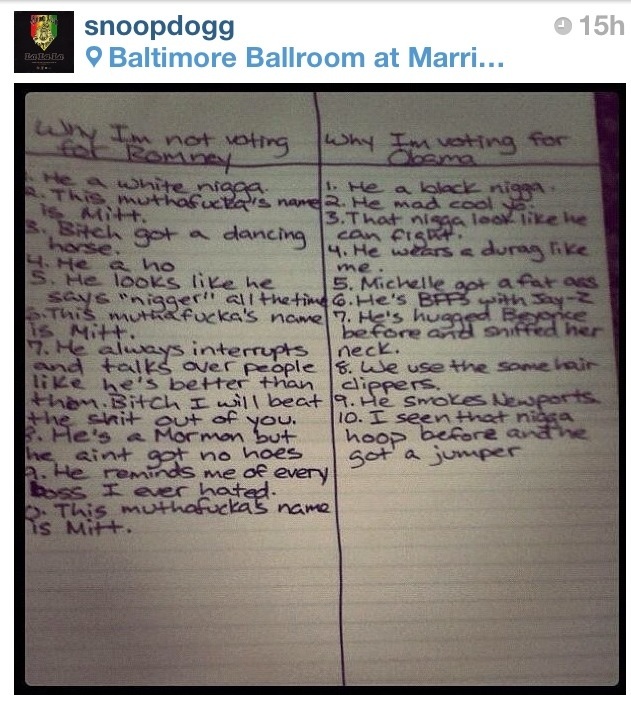 snoopdogg
15h
Baltimore Ballroom at Marri...
Why I'm not voting
for Romney
1. He a white nigga.
2. This muthafucka's name
is Mitt.
3. Bitch got a dancing
horse.
4. He a ho
5. He looks like he
says "nigger" all the time
6. This muthafucka's name
is Mitt.
7. He always interrupts
and talks over people
like he's better than
them. Bitch I will beat
the shit out of you.
8. He's a Mormon but
he aint got no hoes
9. He reminds me of every
boss I ever hated.
10. This muthafucka's name
is Mitt.
Why I'm voting for
Obama
1. He a black nigga.
2. He mad cool yo.
3. That nigga look like he
can fight.
4. He wears a durag like
me.
5. Michelle got a fat ass
6. He's BFFs with Jay-Z
7. He's hugged Beyonce
before and sniffed her
neck.
8. We use the same hair
clippers.
9. He smokes Newports.
10. I seen that nigga
hoop before and he
got a jumper